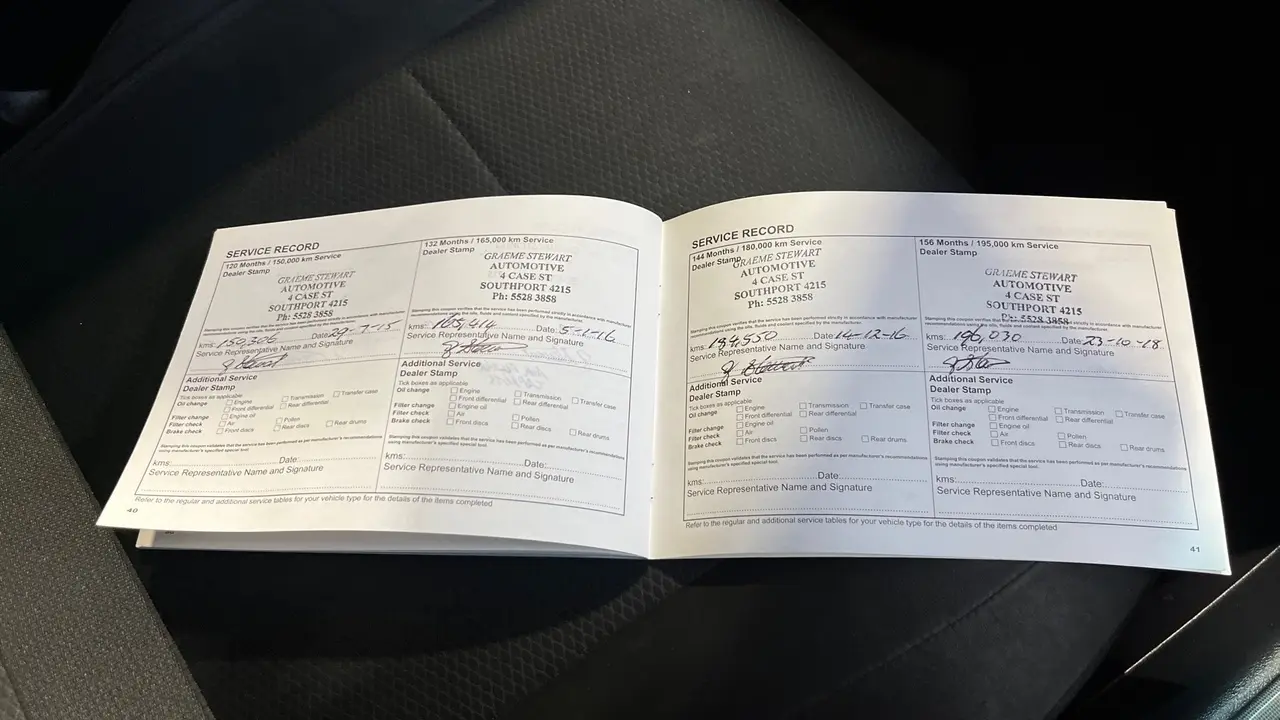 SERVICE RECORD
120 Months / 150,000 km Service
Dealer Stamp
GRAEME STEWART
AUTOMOTIVE
4 CASE ST
SOUTHPORT 4215
Ph: 5528 3858
Stamping this coupon verifies that the service has been performed strictly in accordance with manufacturer
recommendations using the oils, fluids and coolant specified by the manufacturer.
kms: Date:
Service Representative Name and Signature
Additional Service
Dealer Stamp
Tick boxes as applicable
Oil change Engine Transmission Transfer case
Front differential Rear differential
Filter change Engine oil
Filter check Air Pollen
Brake check Front discs Rear discs Rear drums
Stamping this coupon validates that the service has been performed as per manufacturer's recommendations
using manufacturer's specified special tool.
kms: Date:
Service Representative Name and Signature
132 Months / 165,000 km Service
Dealer Stamp
GRAEME STEWART
AUTOMOTIVE
4 CASE ST
SOUTHPORT 4215
Ph: 5528 3858
Stamping this coupon verifies that the service has been performed strictly in accordance with manufacturer
recommendations using the oils, fluids and coolant specified by the manufacturer.
kms: 165,414 Date: 5-1-16
Service Representative Name and Signature
Additional Service
Dealer Stamp
Tick boxes as applicable
Oil change Engine Transmission Transfer case
Front differential Rear differential
Filter change Engine oil
Filter check Air Pollen
Brake check Front discs Rear discs Rear drums
Stamping this coupon validates that the service has been performed as per manufacturer's recommendations
using manufacturer's specified special tool.
kms: Date:
Service Representative Name and Signature
Refer to the regular and additional service tables for your vehicle type for the details of the items completed
40
SERVICE RECORD
144 Months / 180,000 km Service
Dealer Stamp
GRAEME STEWART
AUTOMOTIVE
4 CASE ST
SOUTHPORT 4215
Ph: 5528 3858
Stamping this coupon verifies that the service has been performed strictly in accordance with manufacturer
recommendations using the oils, fluids and coolant specified by the manufacturer.
kms: Date: 14-12-16
Service Representative Name and Signature
Additional Service
Dealer Stamp
Tick boxes as applicable
Oil change Engine Transmission Transfer case
Front differential Rear differential
Filter change Engine oil
Filter check Air Pollen
Brake check Front discs Rear discs Rear drums
Stamping this coupon validates that the service has been performed as per manufacturer's recommendations
using manufacturer's specified special tool.
kms: Date:
Service Representative Name and Signature
156 Months / 195,000 km Service
Dealer Stamp
GRAEME STEWART
AUTOMOTIVE
4 CASE ST
SOUTHPORT 4215
Ph: 5528 3858
Stamping this coupon verifies that the service has been performed strictly in accordance with manufacturer
recommendations using the oils, fluids and coolant specified by the manufacturer.
kms: 196,030 Date: 23-10-18
Service Representative Name and Signature
Additional Service
Dealer Stamp
Tick boxes as applicable
Oil change Engine Transmission Transfer case
Front differential Rear differential
Filter change Engine oil
Filter check Air Pollen
Brake check Front discs Rear discs Rear drums
Stamping this coupon validates that the service has been performed as per manufacturer's recommendations
using manufacturer's specified special tool.
kms: Date:
Service Representative Name and Signature
Refer to the regular and additional service tables for your vehicle type for the details of the items completed
41